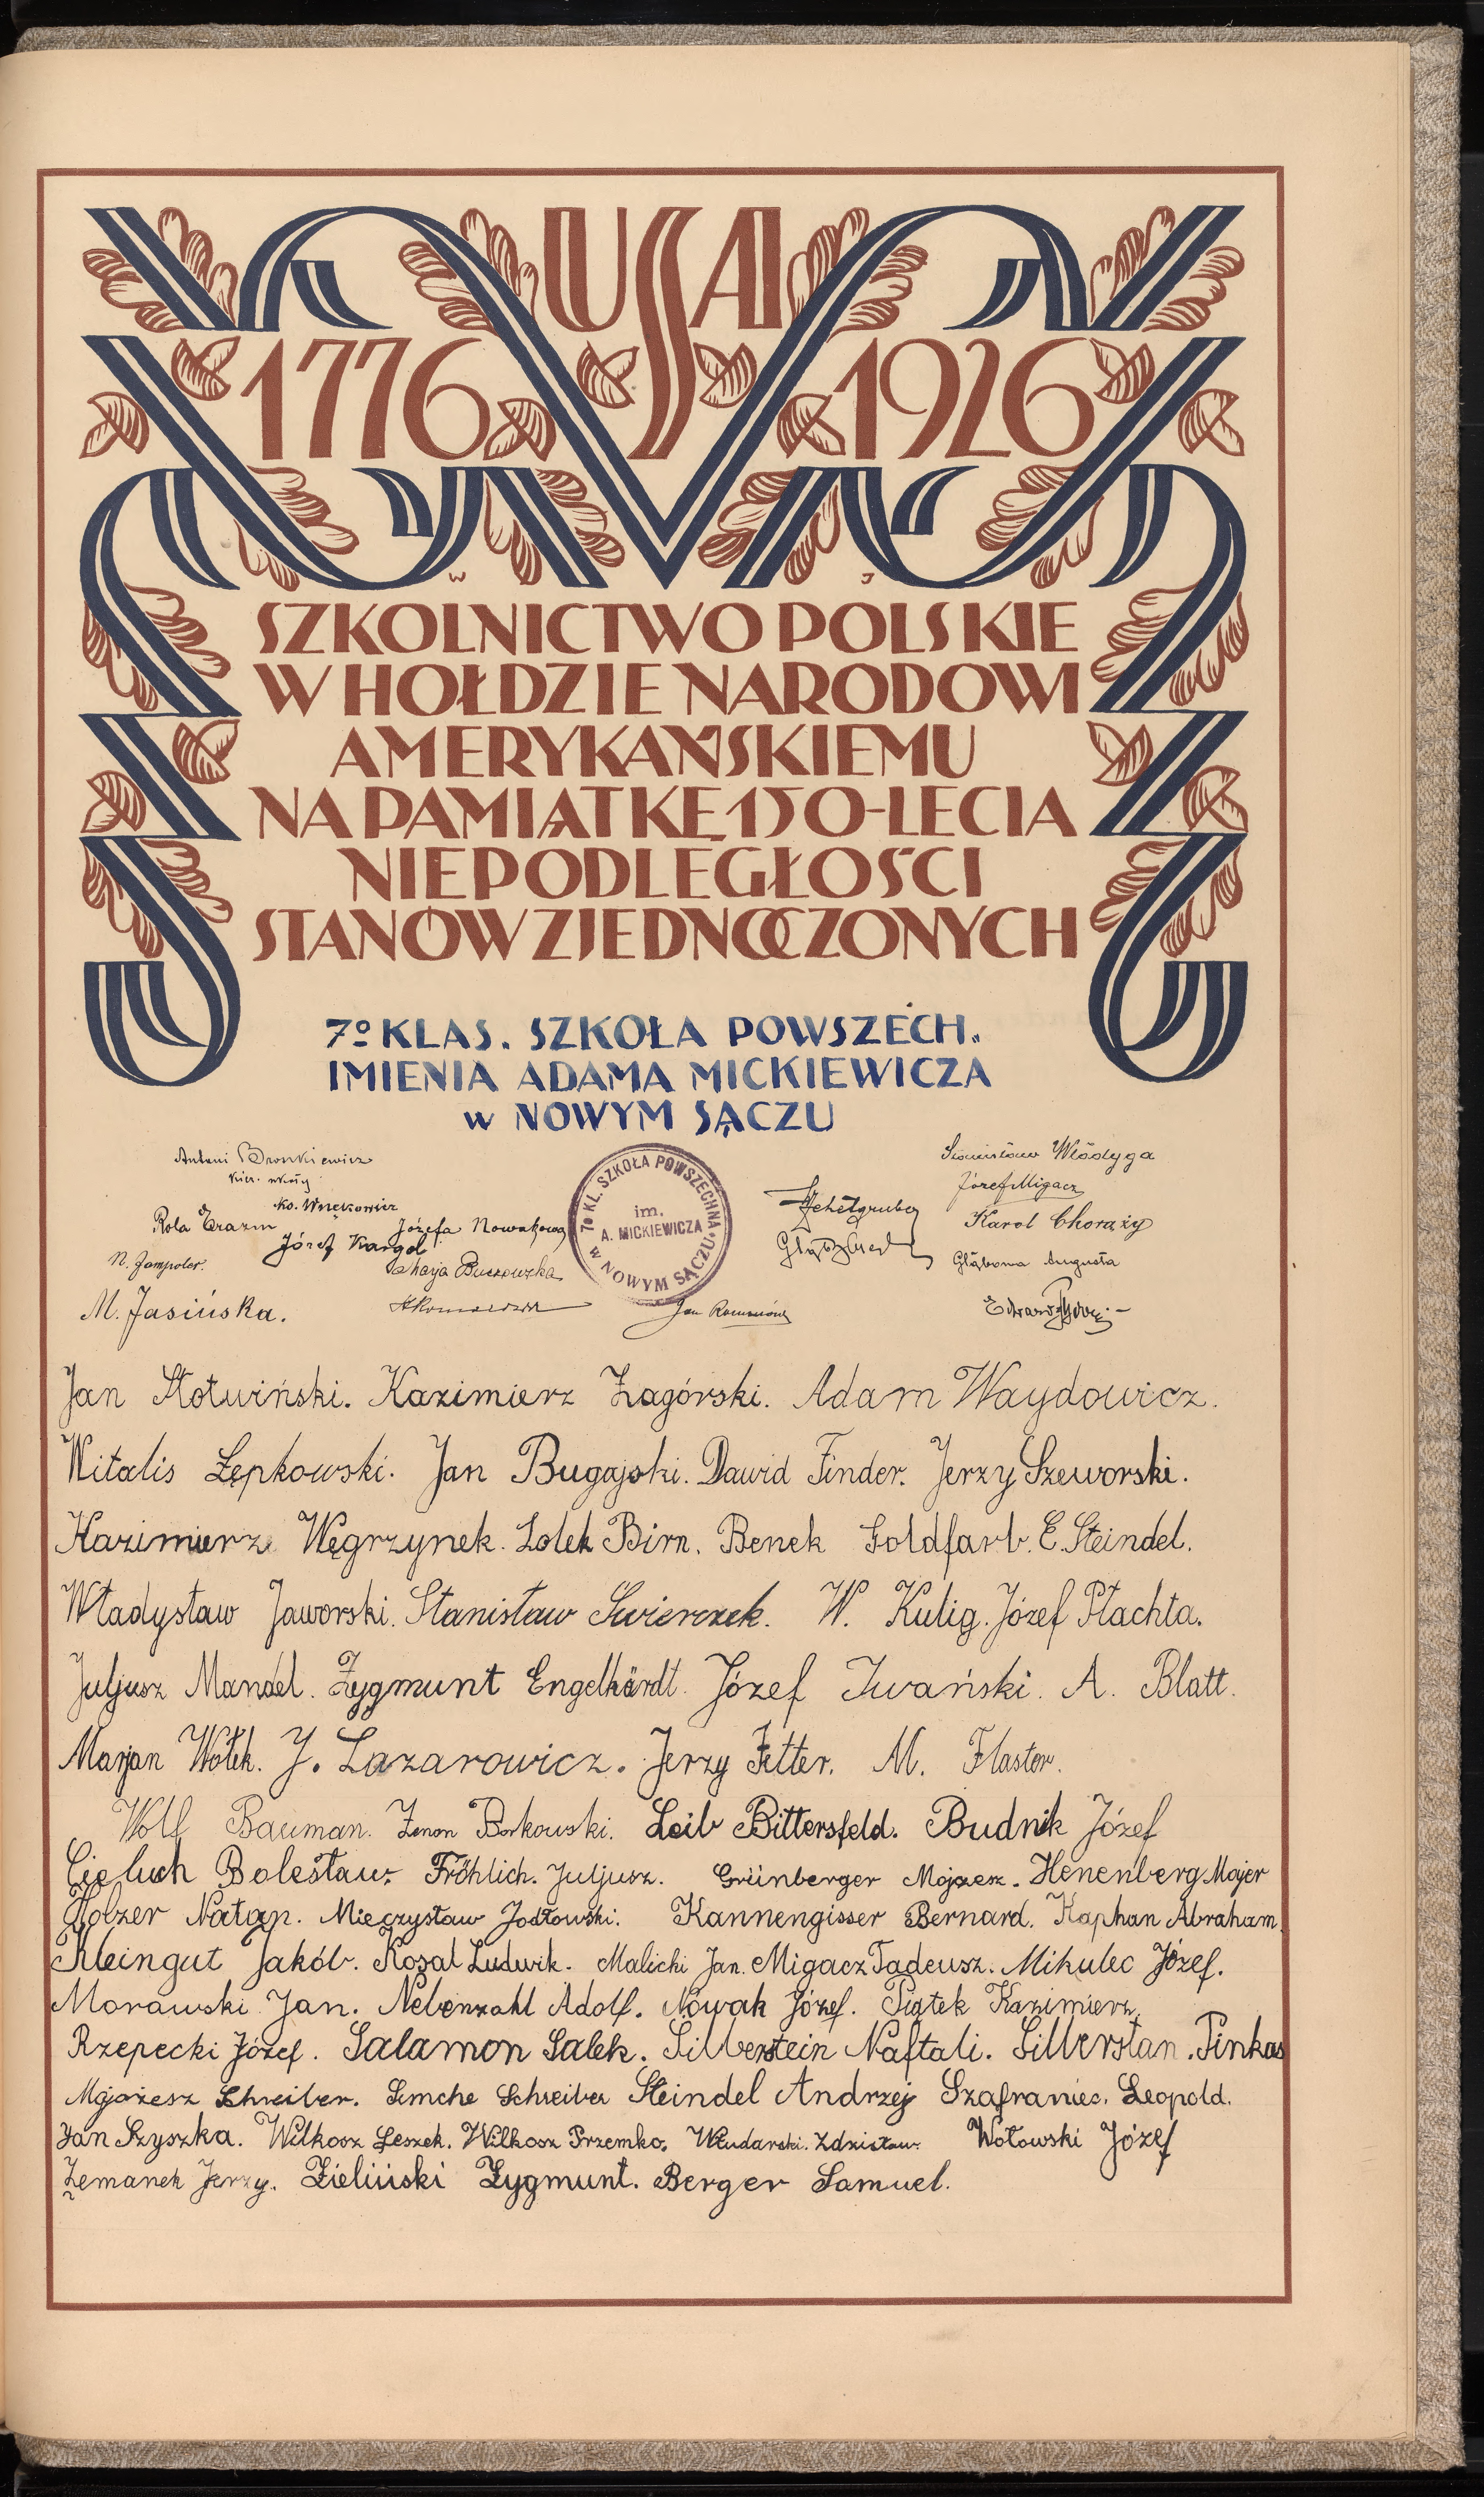 USA
1776 1926
W J
SZKOLNICTWO POLSKIE
W HOŁDZIE NARODOWI
AMERYKAŃSKIEMU
NA PAMIĄTKĘ 150-LECIA
NIEPODLEGŁOŚCI
STANÓW ZJEDNOCZONYCH
7o KLAS. SZKOŁA POWSZECH.
IMIENIA ADAMA MICKIEWICZA
w NOWYM SĄCZU
Antoni Bronkiewicz
kier. szkoły
Rola Erazm
Józef Kargol
Józefa Nowakowa
N. Jampoler.
Marja Buczowska
M. Jasińska.
7o KL. SZKOŁA POWSZECHNA
im.
A. MICKIEWICZA
w NOWYM SĄCZU.
Stanisław Włodyga
Józef Migacz
Karol Chorąży
Głąbowa Augusta
Jan Stotwiński. Kazimierz Zagórski. Adam Waydowicz.
Witalis Łępkowski. Jan Bugajski. Dawid Finder. Jerzy Szeworski.
Kazimierz Węgrzynek. Lolek Birn. Benek Goldfarb. E. Steindel.
Władysław Jaworski. Stanisław Świerczek. W. Kulig. Józef Płachta.
Juljusz Mandel. Zygmunt Engelhärdt. Józef Iwański. A. Blatt.
Marjan Wołek. J. Lazarowicz. Jerzy Fetter. M. Flaster.
Wolf Bauman. Zenon Borkowski. Leib Bittersfeld. Budnik Józef
Cieluch Bolesław. Fröhlich. Juljusz. Grünberger Mojżesz. Henenberg Majer
Holzer Natan. Mieczysław Jodłowski. Kannengisser Bernard. Kaphan Abraham.
Kleingut Jakób. Kosal Ludwik. Malicki Jan. Migacz Tadeusz. Mikulec Józef.
Morawski Jan. Nebenzahl Adolf. Nowak Józef. Piątek Kazimierz.
Rzepecki Józef. Salamon Salek. Silberstein Naftali. Silberstan. Pinkas
Mojżesz Schreiber. Simche Schreiber Steindel Andrzej Szafraniec. Leopold.
Jan Szyszka. Wilkosz Leszek. Wilkosz Przemko. Włudarski. Zdzisław. Wołowski Józef
Zemanek Jerzy. Zieliński Zygmunt. Berger Samuel.